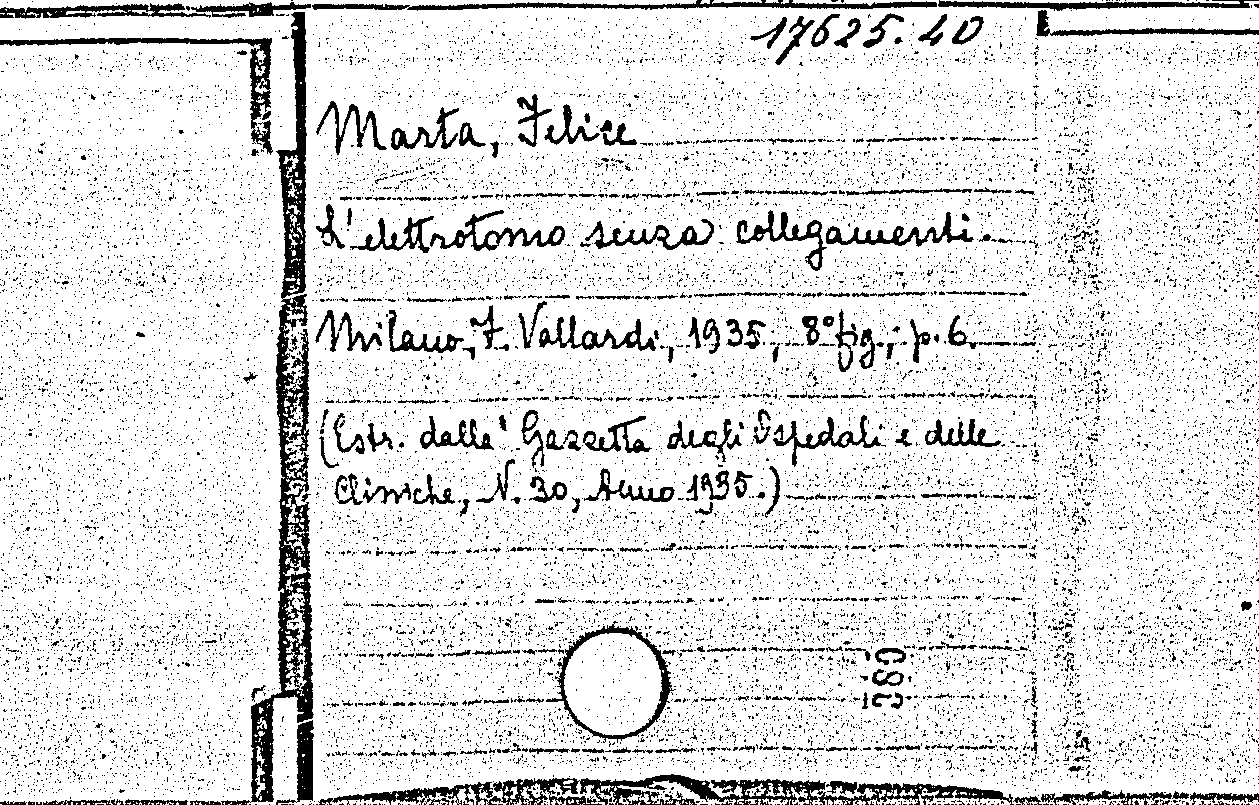 17625.40
Marta, Felice
L'elettrotomo senza collegamenti.
Milano, F. Vallardi, 1935, 8° fig., p. 6.
(Estr. dalla "Gazzetta degli Ospedali e delle
Cliniche, N. 30, Anno 1935.)